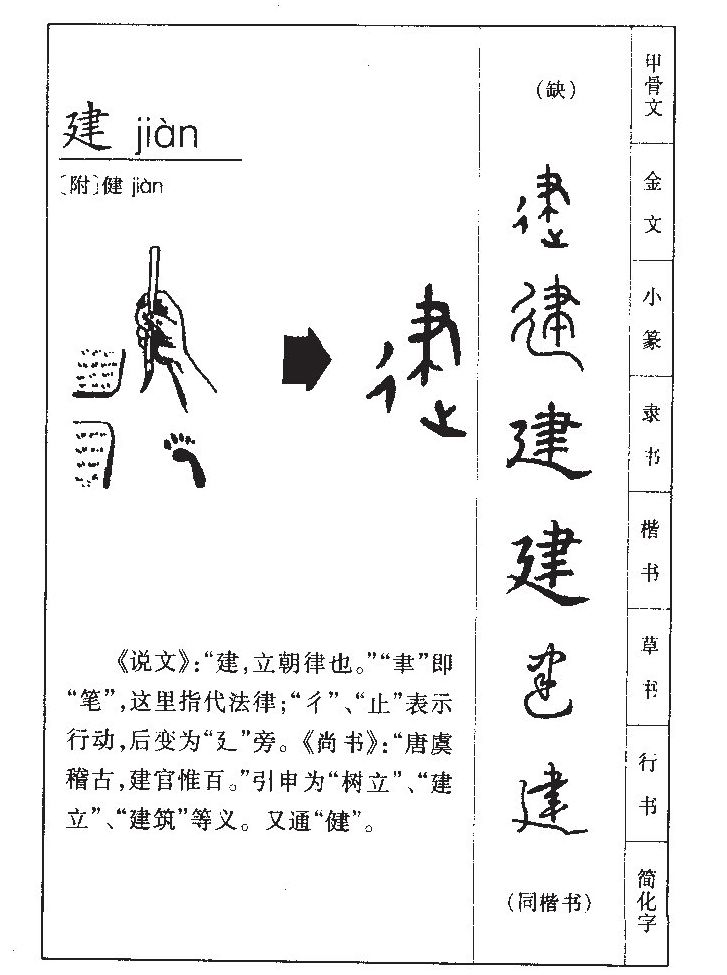 建 jiàn
〔附〕健 jiàn
《说文》：“建，立朝律也。”“聿”即
“笔”，这里指代法律；“彳”、“止”表示
行动，后变为“廴”旁。《尚书》：“唐虞
稽古，建官惟百。”引申为“树立”、“建
立”、“建筑”等义。又通“健”。
甲骨文
（缺）
金文
建
小篆
建
隶书
建
楷书
建
草书
建
行书
建
简化字
（同楷书）